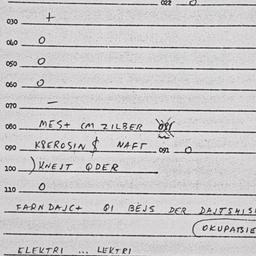 022 0
030 +
040 0
050 0
060 0
070 —
080 MES+ CM ZILBER
090 KEROSIN $ NAFT 091 0
100 ) KNEJT QDER
110 0
FARNDAJC+ QI BEJS DER DAJTSHIS
OKUPATSIE
ELEKTRI ... LEKTRI